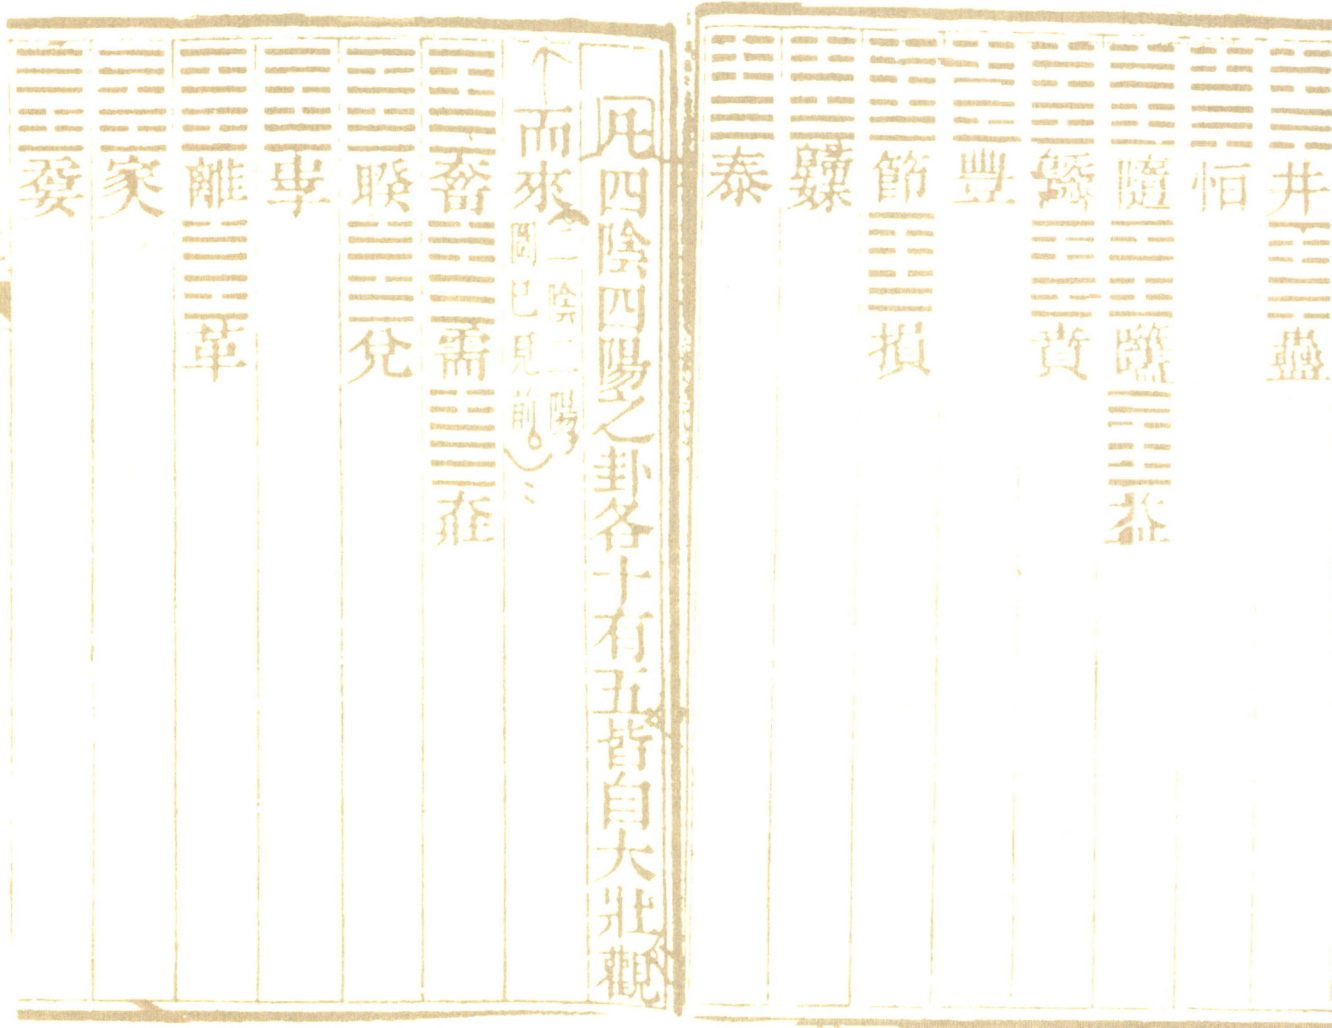 井 蠱
恒
隨 噬嗑 益
既濟 賁
豐
節 損
歸妹
泰
凡四陰四陽之卦各十有五皆自大壯觀
而來 二陰二陽
圖已見前
大畜 需 大壯
睽 兌
中孚
離 革
家人
无妄